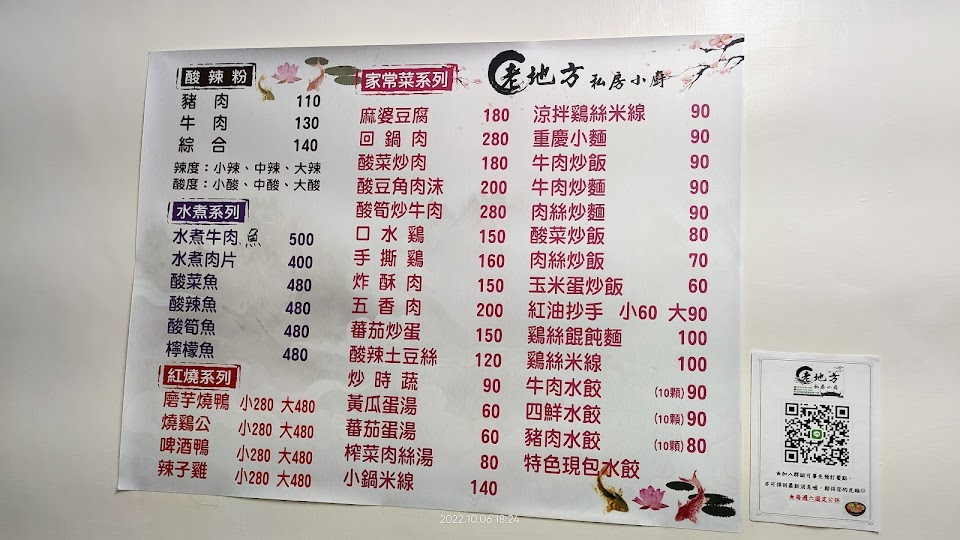 老地方 私房小廚
酸辣粉
豬肉 110
牛肉 130
綜合 140
辣度：小辣、中辣、大辣
酸度：小酸、中酸、大酸
水煮系列
水煮牛肉.魚 500
水煮肉片 400
酸菜魚 480
酸辣魚 480
酸筍魚 480
檸檬魚 480
紅燒系列
磨芋燒鴨 小280 大480
燒鷄公 小280 大480
啤酒鴨 小280 大480
辣子雞 小280 大480
家常菜系列
麻婆豆腐 180
回鍋肉 280
酸菜炒肉 180
酸豆角肉沫 200
酸筍炒牛肉 280
口水鷄 150
手撕鷄 160
炸酥肉 150
五香肉 200
番茄炒蛋 150
酸辣土豆絲 120
炒時蔬 90
黃瓜蛋湯 60
番茄蛋湯 60
榨菜肉絲湯 80
小鍋米線 140
涼拌鷄絲米線 90
重慶小麵 90
牛肉炒飯 90
牛肉炒麵 90
肉絲炒麵 90
酸菜炒飯 80
肉絲炒飯 70
玉米蛋炒飯 60
紅油抄手 小60 大90
鷄絲餛飩麵 100
鷄絲米線 100
牛肉水餃 (10顆) 90
四鮮水餃 (10顆) 90
豬肉水餃 (10顆) 80
特色現包水餃
老地方
私房小廚
LINE
2022.10.06 18:24